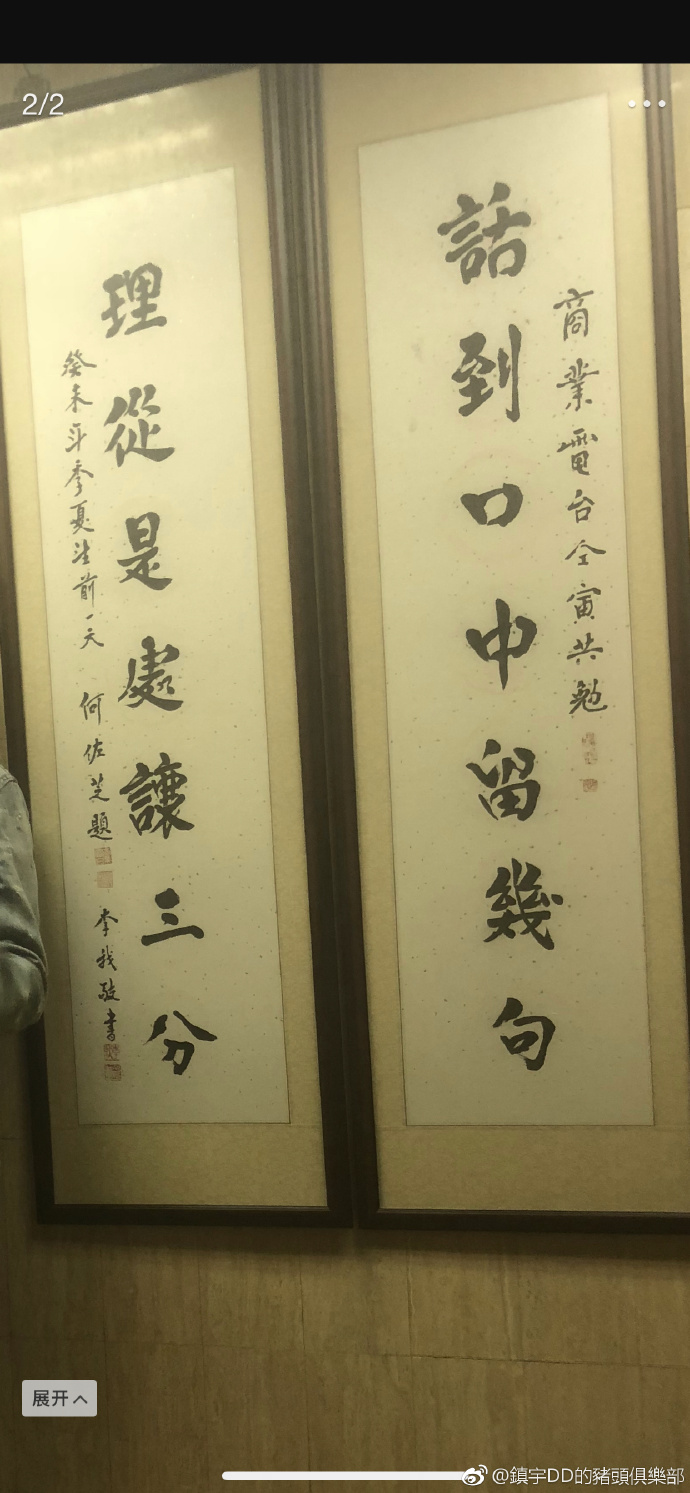 2/2
商業電台仝寅共勉
話到口中留幾句
理從是處讓三分
癸未年季夏生前一天 何佐芝題
李我敬書
展开
@鎮宇DD的豬頭俱樂部